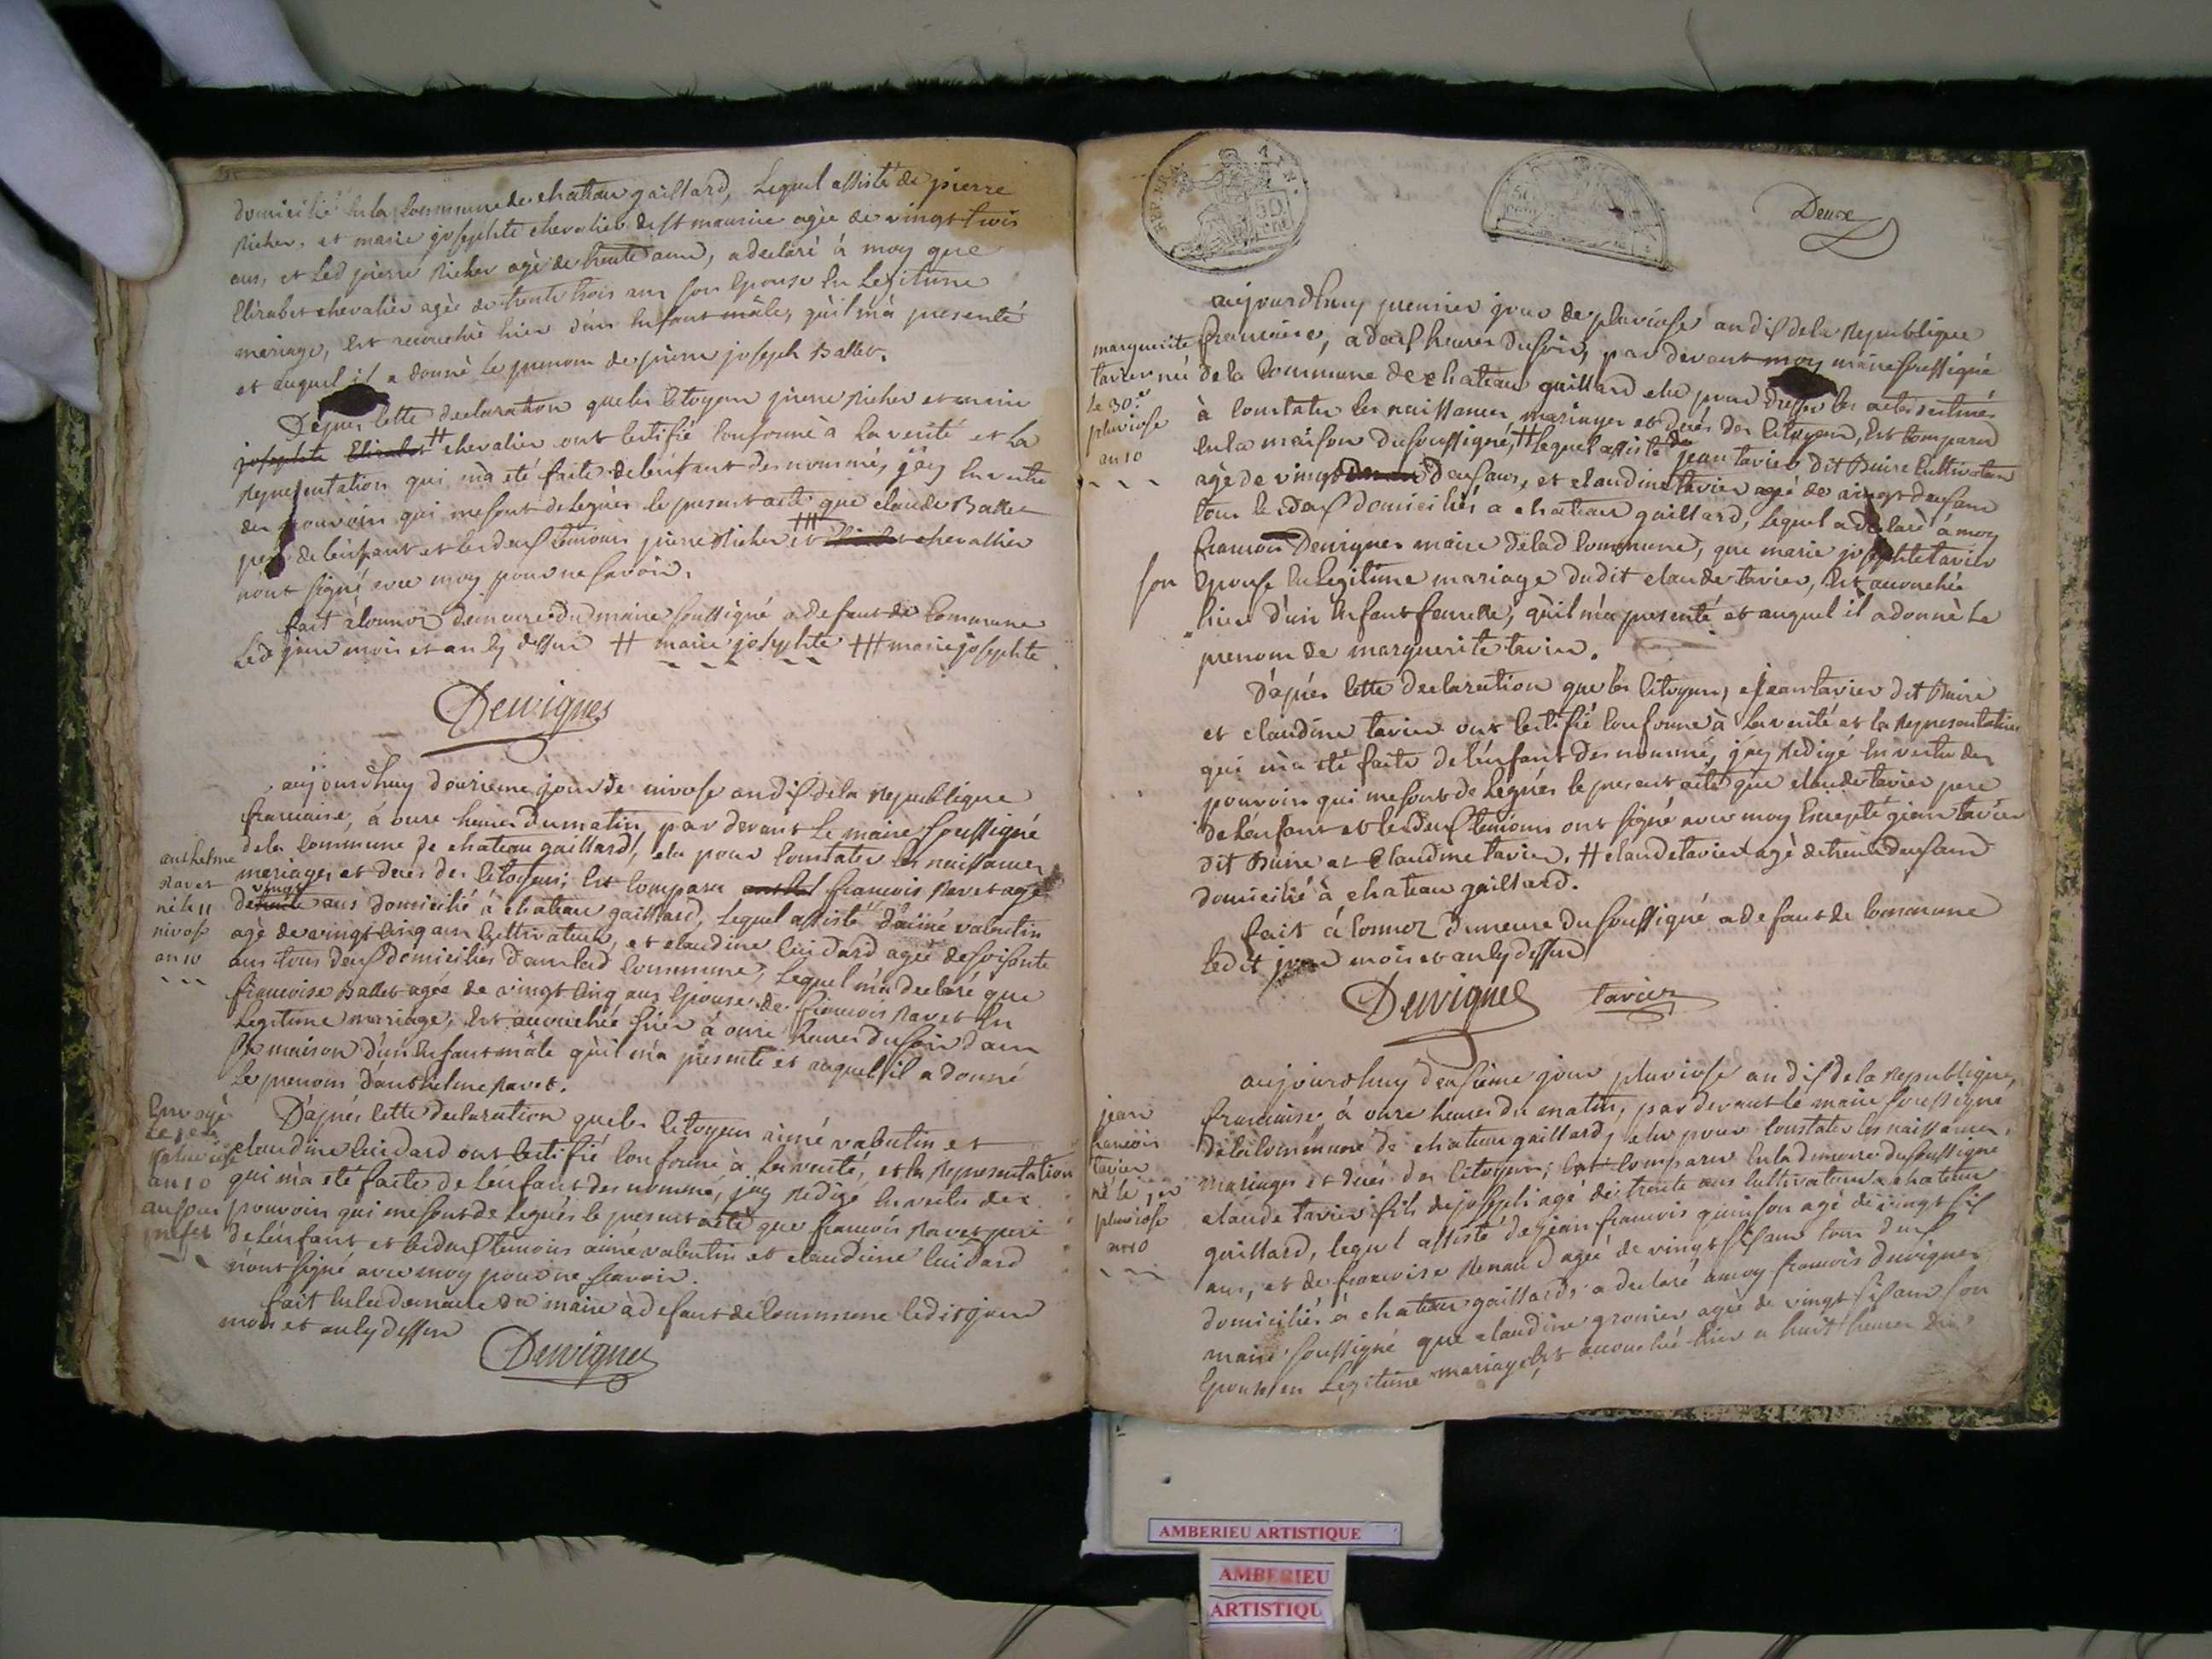 domicilié en la commune de chateau gaillard, lequel assisté de pierre
Richer, et marie josephte chevalier de st maurice agèe de vingt trois
ans, et led pierre Richer agé de trente ans, a declaré à moy que
Elizabet chevalier agèe de trente trois ans son Epouse en Legitime
mariage, est acouchée hier d'un Enfant mâle, qu'il m'à presenté
et auquel il a donné le prenom de pierre joseph Ballet.
D'apres cette declaration que les citoyens pierre Richer et marie
josephte Elizabet # chevalier ont certifié conforme à la verité et la
representation qui m'a eté faite de l'enfant denommé, j'ay en vertu
des pouvoirs qui me sont delegués le present acte que claude Ballet
pere de l'enfant et les deux temoins pierre Richer et chevallier
n'ont signé avec moy pour ne savoir.
fait à cormoz demeure du maire soussigné a defaut de commune
led jour mois et an cy dessus # marie josephte ### marie josephte
Dewignes
aujourdhuy douzieme jour de nivose an dix de la Republique
francaise, à onze heures du matin, par devant le maire soussigné
de la commune de chateau gaillard, elu pour constater les naissances
mariages et decés des citoyens; est comparu francois Ravet agé
de vingt ans domicilié à chateau gaillard, lequel assisté d'aimé valentin
agé de vingt cinq ans cultivateur, et claudine cuidard agée de soisante
ans tous deux domiciliés dans lad commune, lequel m'a declaré que
francoise Ballet agée de vingt cinq ans Epouse de francois Ravet en
Legitime mariage, est acouchée hier à onze heures du soir dans
sa maison d'un Enfant mâle qu'il m'a presenté et auquel il a donné
le prenom d'anthelme Ravet.
anthelme
Ravet
né le 11
nivose
an 10
D'après cette declaration que les citoyens aimé valentin et
claudine cuidard ont certifié conforme à la verité, et la representation
qui m'a eté faite de l'enfant denommé, j'ay redigé en vertu des
pouvoirs qui me sont delegués le present acte que francois Ravet pere
de l'enfant et les deux temoins aimé valentin et claudine cuidard
n'ont signé avec moy pour ne scavoir.
fait en la demeure du maire à defaut de commune ledit jour
mois et an cy dessus
Envoyé
pluviose
an 10
au sous
prefet
Dewignes
REP. FRA.
50
cent
50
Deuxe
aujourdhuy premier jour de pluviose an dix de la Republique
francaise, a deux heures du soir, par devant moy maire soussigné
de la commune de chateau gaillard elu pour dresser les actes destinés
à constater les naissances mariages et decés des citoyens, est comparu
en la maison du soussigné, # lequel assisté de jean tavier dit Buire cultivateur
agé de vingt deux ans, et claudine tavier agé de vingt deux ans
tous les deux domiciliés a chateau gaillard, lequel a declaré à moy
francois Dewignes maire de lad commune, que marie josephte tavier
son Epouse en Legitime mariage dudit claude tavier, est acouchée
hier d'un Enfant femelle, qu'il m'a presenté et auquel il a donné le
prenom de marguerite tavier.
marguerite
tavier née
le 30e
pluviose
an 10
D'apres cette declaration que les citoyens, jean tavier dit Buire
et claudine tavier ont certifié conforme à la verité et la representation
qui m'a eté faite de l'enfant denommé, j'ay redigé en vertu des
pouvoirs qui me sont delegués le present acte que claude tavier pere
de l'enfant et les deux temoins ont signé avec moy Excepté jean tavier
dit Buire et Claudine tavier. # claude tavier agé de trente deux ans
domicilié à chateau gaillard.
fait à cormoz demeure du soussigné a defaut de commune
ledit jour mois et an cy dessus
Dewignes tavier
aujourdhuy deuxieme jour pluviose an dix de la Republique,
francaise à onze heures du matin, par devant le maire soussigné
de la commune de chateau gaillard, elu pour constater les naissances
mariages et decés des citoyens; est comparu en la demeure du soussigné
claude tavier fils de joseph agé de trente ans cultivateur a chateau
gaillard, lequel assisté de jean francois quinson agé de vingt six
ans, et de francoise Renaud agée de vingt six ans tous deux
domiciliés à chateau gaillard, a declaré a moy francois dewignes
maire soussigné que claudine gronier agée de vingt six ans son
Epouse en Legitime mariage, est acouchée hier a huit heures du
jean
francois
tavier
né le 1er
pluviose
an 10
AMBERIEU ARTISTIQUE
AMBERIEU
ARTISTIQU